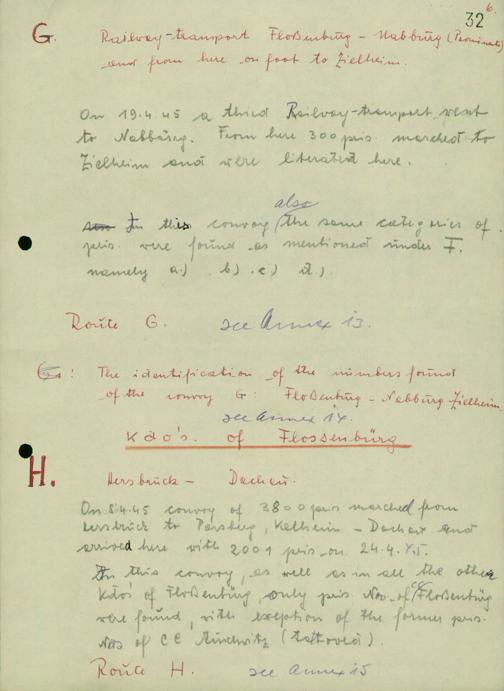 6.
32
G. Railway-transport Floßenbürg - Nabburg (Prominents)
and from here on foot to Zielheim.
On 19.4.45 a third Railway-transport went
to Nabbürg. From here 300 pris. marched to
Zielheim and were literated here.
also
In this convoy (the same categories of
pris. were found as mentioned under F.
namely a.) b.) c.) d.)
Route G. see Annex 13.
G: The identification of the numbers found
of the convoy G: Floßenbürg - Nabburg Zielheim
see Annex 14.
Kdo's. of Flossenbürg
H. Hersbrück - Dachau.
On 8.4.45 convoy of 3800 pris marched from
Hersbrück to Parsberg, Kelheim - Dachau and
arrived here with 2001 pris on 24.4.45.
In this convoy, as well as in all the other
Kdo's of Floßenbürg, only pris. Nos. of CC Floßenbürg
were found, with exeption of the former pris.
Nos of CC Auschwitz (tattoved).
Route H. see Annex 15